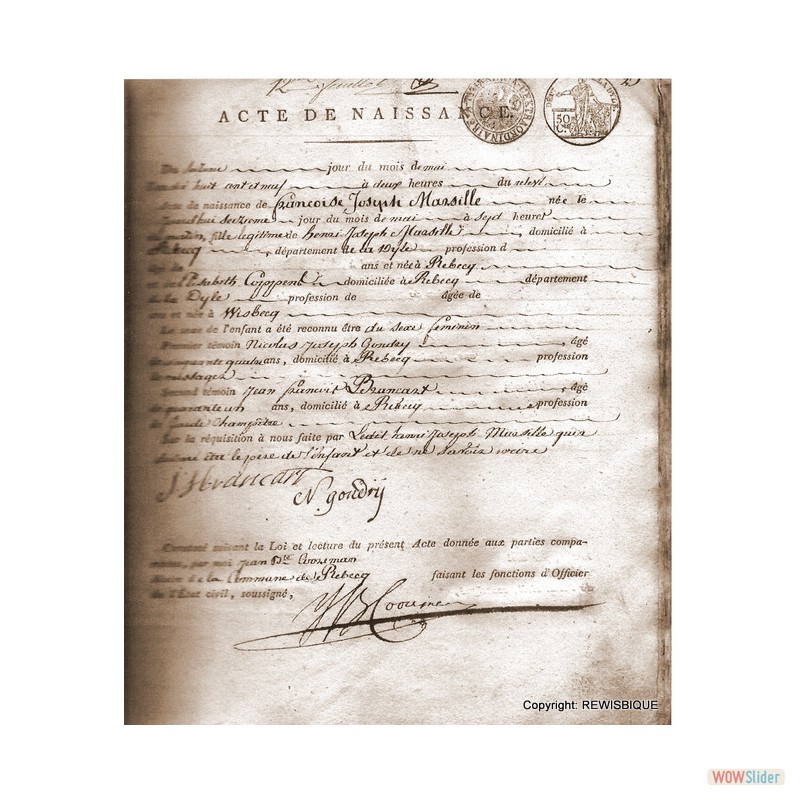 12 juillet
ACTE DE NAISSANCE.
EXTRAORDINAIRE
50 C.
jour du mois de mai
huit cent et neuf à deux heures du relevé
Acte de naissance de françoise Joseph Marsille née le
jourdhui seizieme jour du mois de mai à sept heures
fille legitime de henri Joseph Marsille, domicilié à
Rebecq, département de la Dyle profession d
ans et née à Rebecq
Elisabeth Coppens domiciliée à Rebecq département
de la Dyle profession de âgée de
ans et née à Wisbecq
Le sexe de l'enfant a été reconnu être du sexe feminin
Premier témoin Nicolas Joseph Gondry, âgé
cinquante quatre ans, domicilié à Rebecq profession
de
Second témoin Jean francois Brancart, âgé
de quarante un ans, domicilié à Rebecq profession
de Garde Champetre
Sur la réquisition à nous faite par Ledit henri Joseph Marsille qui
être le pere de l'enfant et de ne savoir
Brancart
N. gondry
Constaté suivant la Loi et lecture du présent Acte donnée aux parties compa-
rantes, par moi jean Bte Cooreman
Maire de la Commune de Rebecq faisant les fonctions d'Officier
de l'État civil, soussigné,
JB Cooreman
Copyright: REWISBIQUE
WOWSlider